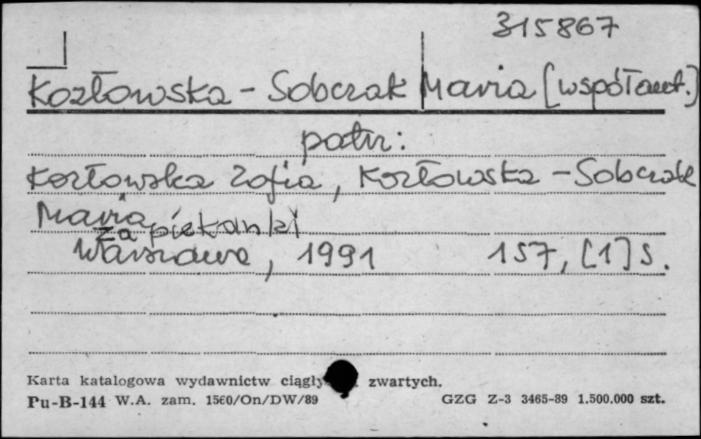 315867
Kozłowska - Sobczak Maria [współaut.]
patrz:
Kozłowska Zofia, Kozłowska - Sobczak
Maria
Zapiekanki
Warszawa, 1991 157, [1] s.
Karta katalogowa wydawnictw ciągły zwartych.
Pu-B-144 W.A. zam. 1560/On/DW/89 GZG Z-3 3465-89 1.500.000 szt.